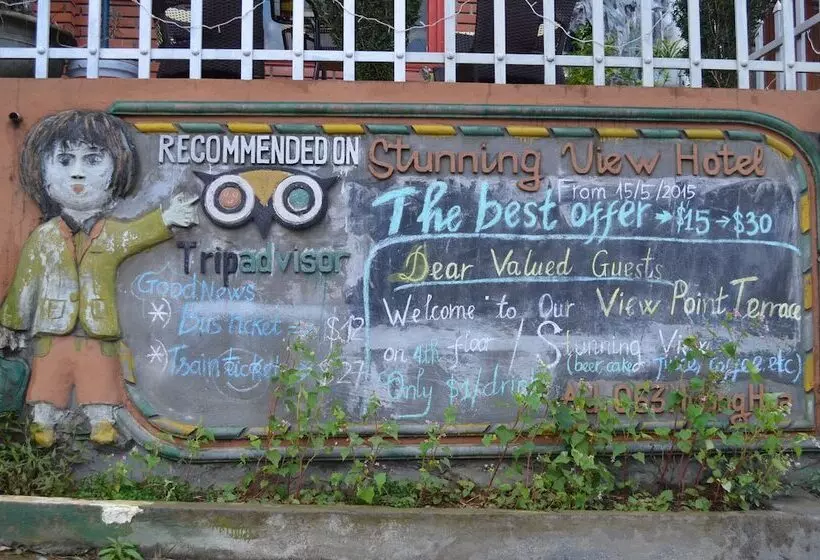 RECOMMENDED ON
Tripadvisor
Good News
Bus ticket = $12
Train ticket $27
Stunning View Hotel
From 15/5/2015
The best offer → $15 → $30
Dear Valued Guests
Welcome to Our View Point Terrace
on 4th floor / Stunning View
(beer, coffee etc)
Only $1/drink
Ad: 063